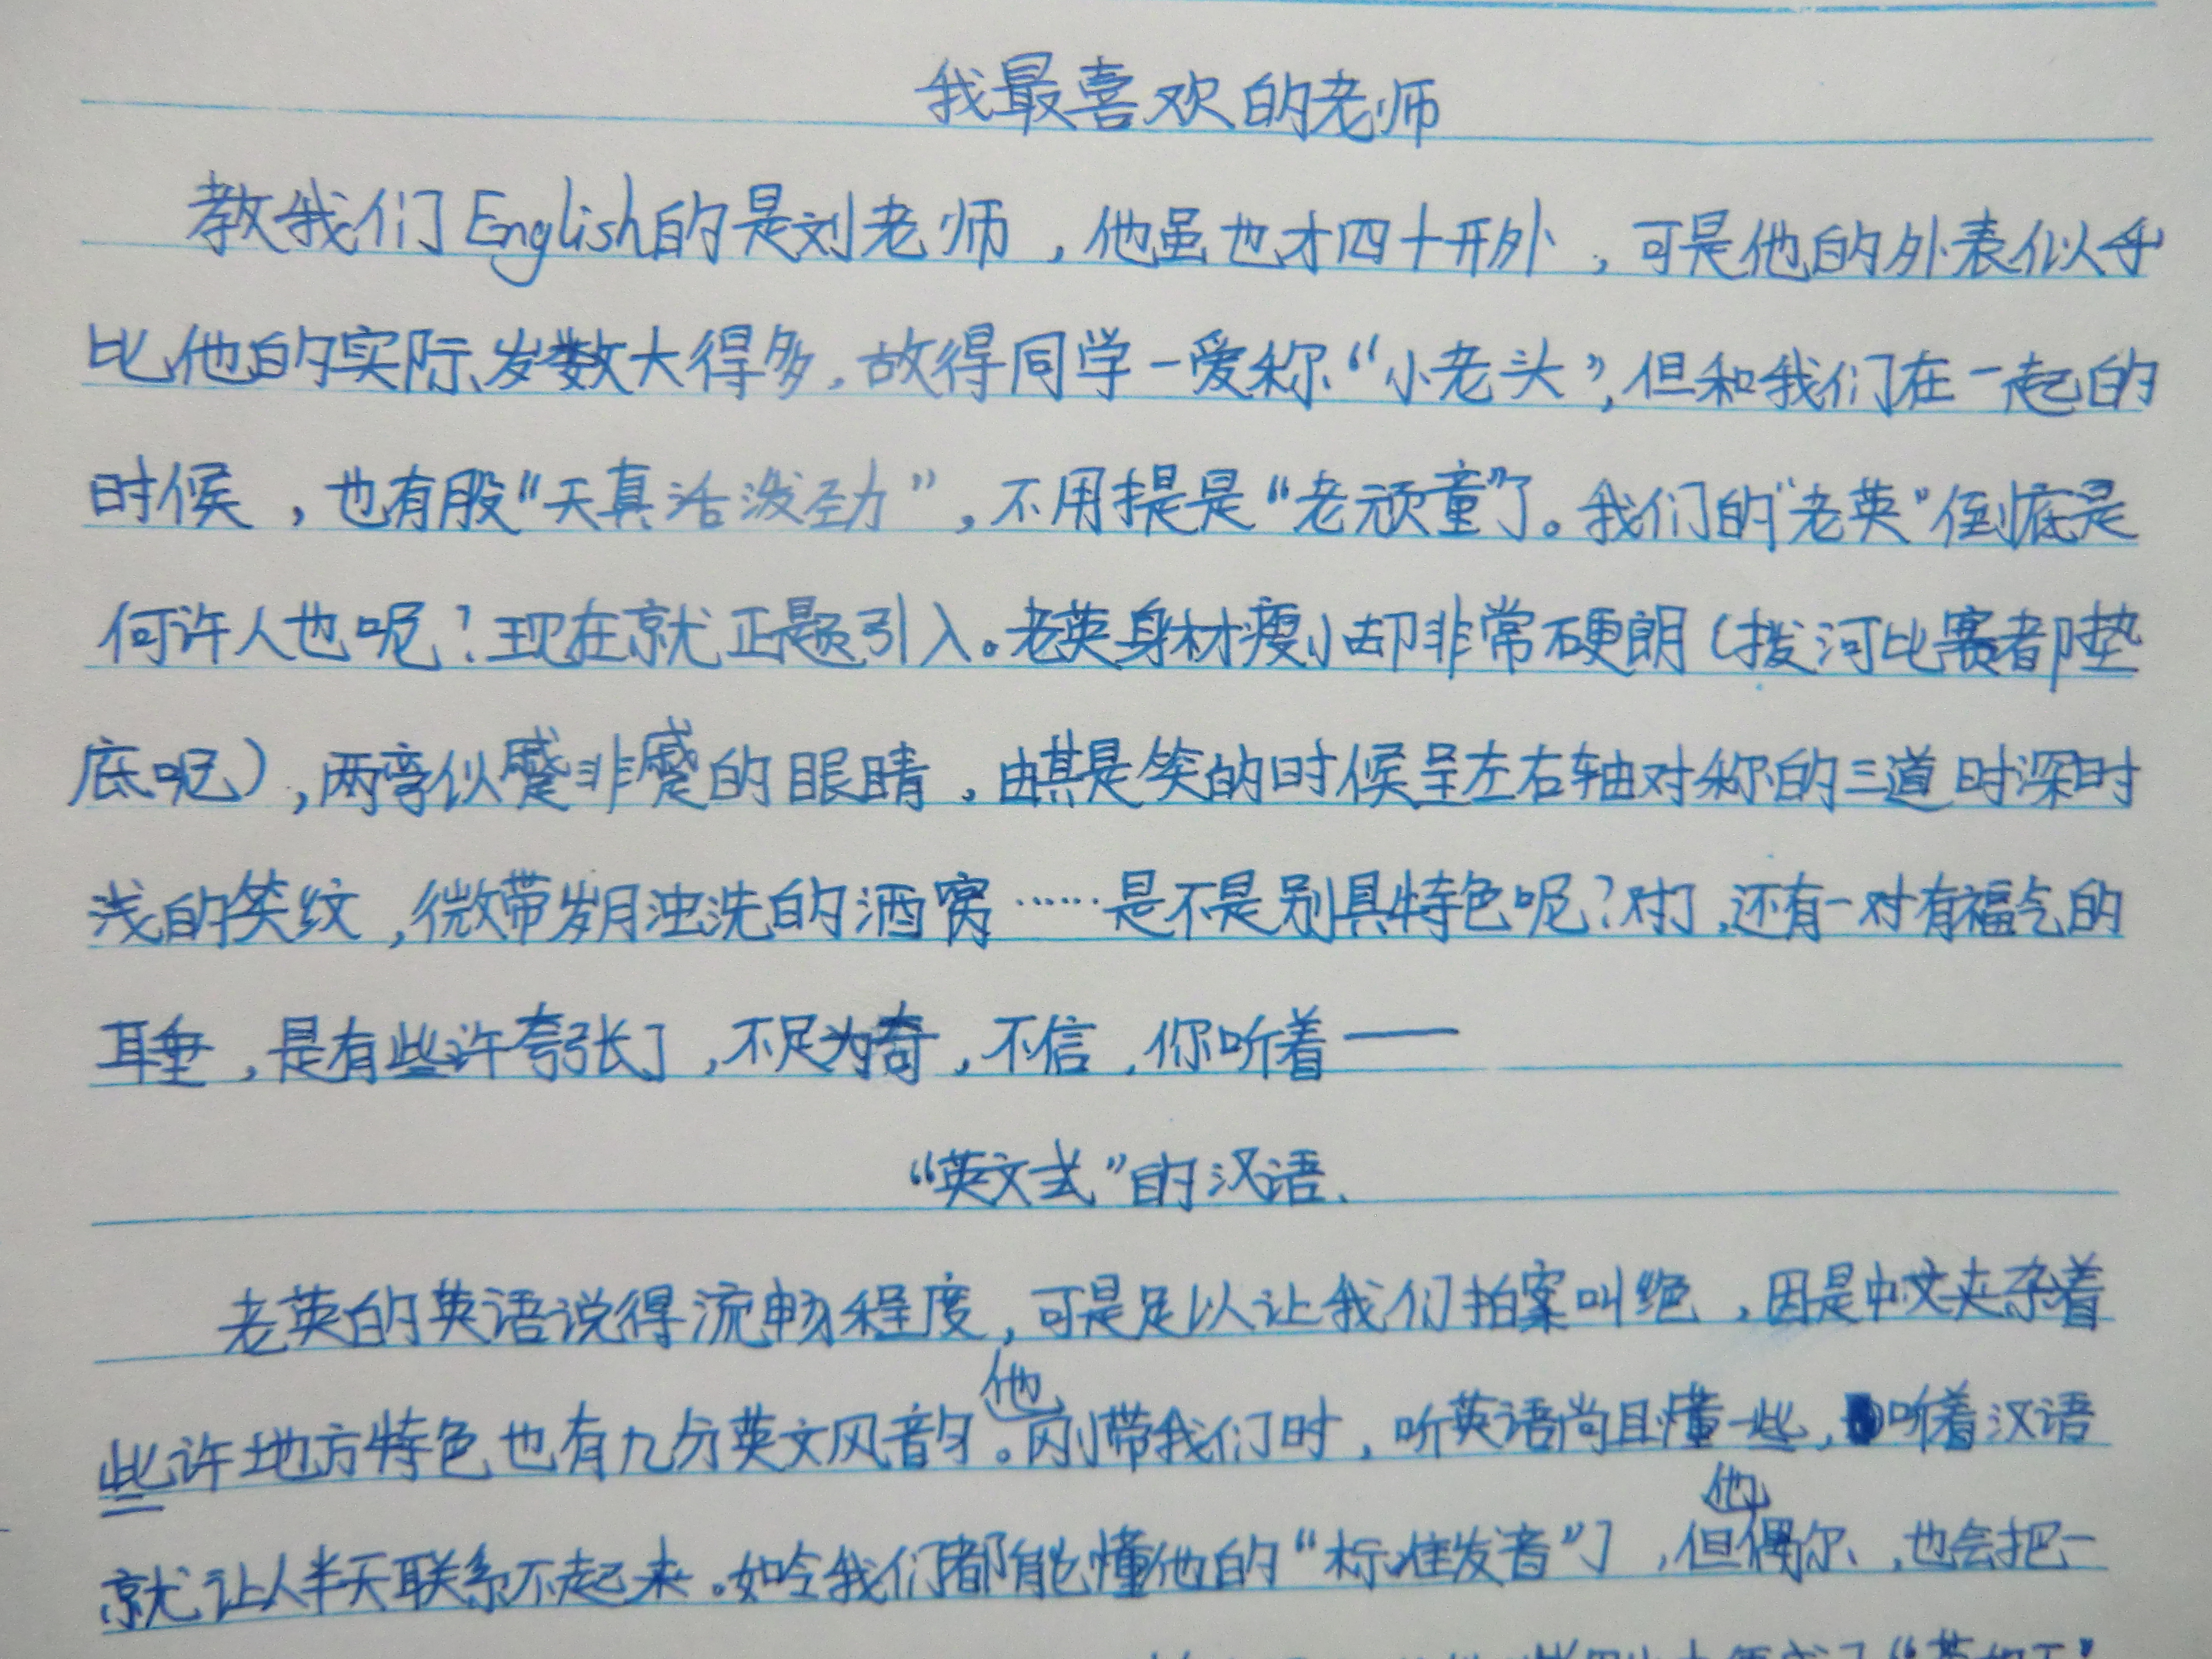 我最喜欢的老师
教我们English的是刘老师，他虽也才四十开外，可是他的外表似乎
比他的实际岁数大得多，故得同学一爱称“小老头”，但和我们在一起的
时候，也有股“天真活泼劲”，不用提是“老顽童”了。我们的“老英”倒底是
何许人也呢？现在就正题引入。老英身材瘦小却非常硬朗（拨河比赛都垫
底呢），两弯似蹙非蹙的眼睛，由其是笑的时候呈左右轴对称的三道时深时
浅的笑纹，微带岁月浊洗的酒窝……是不是别具特色呢？对了，还有一对有福气的
耳垂，是有些许夸张了，不足为奇，不信，你听着——
“英文式”的汉语.
老英的英语说得流畅程度，可是足以让我们拍案叫绝，因是中文夹杂着
些许地方特色也有九分英文风韵。他刚带我们时，听英语尚且懂一些，听着汉语
就让人半天联系不起来。如今我们都能懂他的“标准发音”了，但他偶尔，也会把一